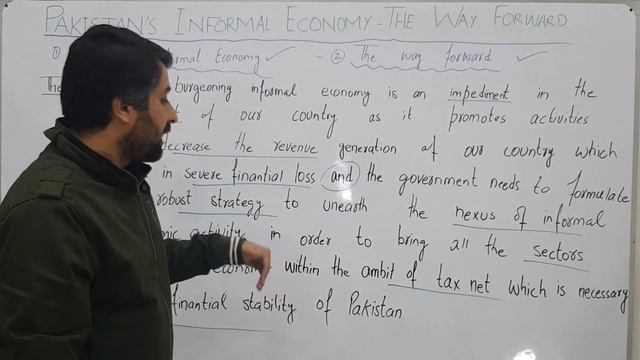 PAKISTAN'S INFORMAL ECONOMY - THE WAY FORWARD
① Economy ✓ - ② The way forward ✓
burgeoning informal economy is an impediment in the
of our country as it promotes activities
decrease the revenue generation of our country which
in severe finantial loss and the government needs to formulate
robust strategy to unearth the nexus of informal
activity in order to bring all the sectors
within the ambit of tax net which is necessary
finantial stability of Pakistan.